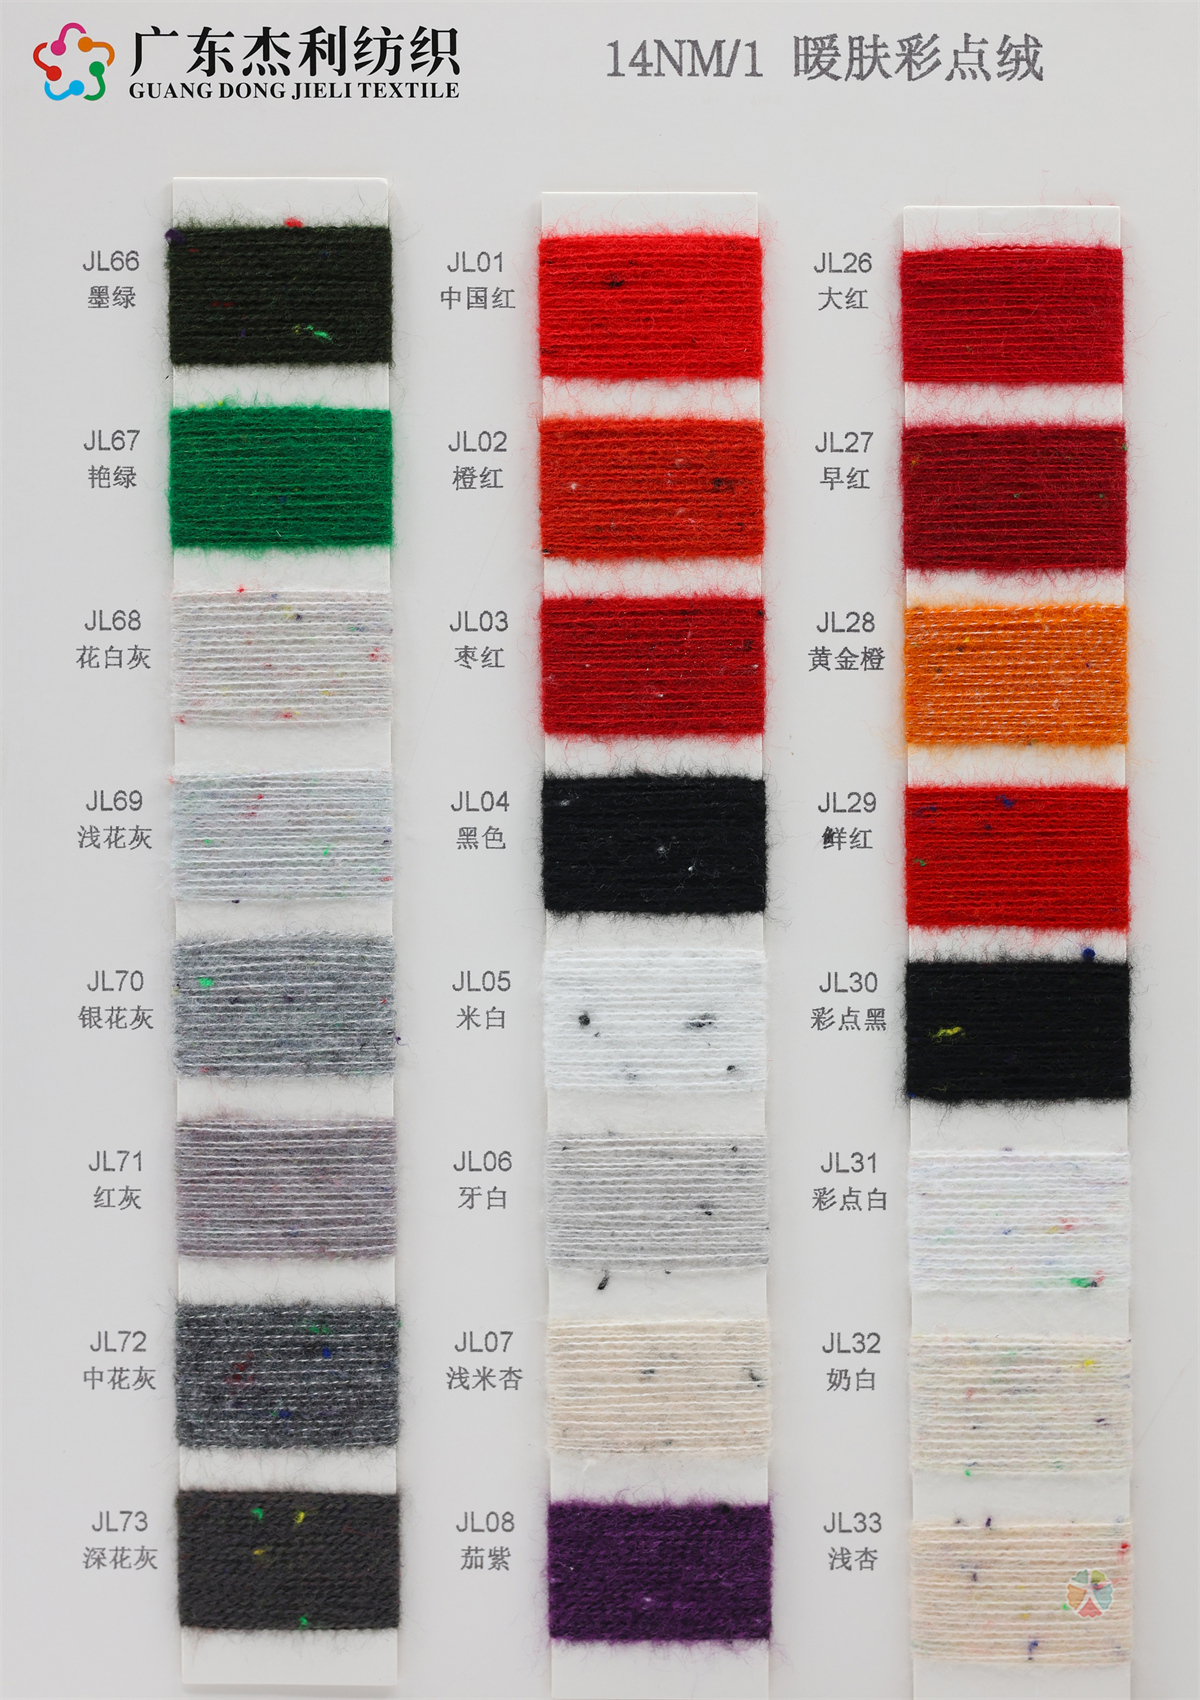 广东杰利纺织
GUANG DONG JIELI TEXTILE
14NM/1 暖肤彩点绒
JL66
墨绿
JL67
艳绿
JL68
花白灰
JL69
浅花灰
JL70
银花灰
JL71
红灰
JL72
中花灰
JL73
深花灰
JL01
中国红
JL02
橙红
JL03
枣红
JL04
黑色
JL05
米白
JL06
牙白
JL07
浅米杏
JL08
茄紫
JL26
大红
JL27
早红
JL28
黄金橙
JL29
鲜红
JL30
彩点黑
JL31
彩点白
JL32
奶白
JL33
浅杏